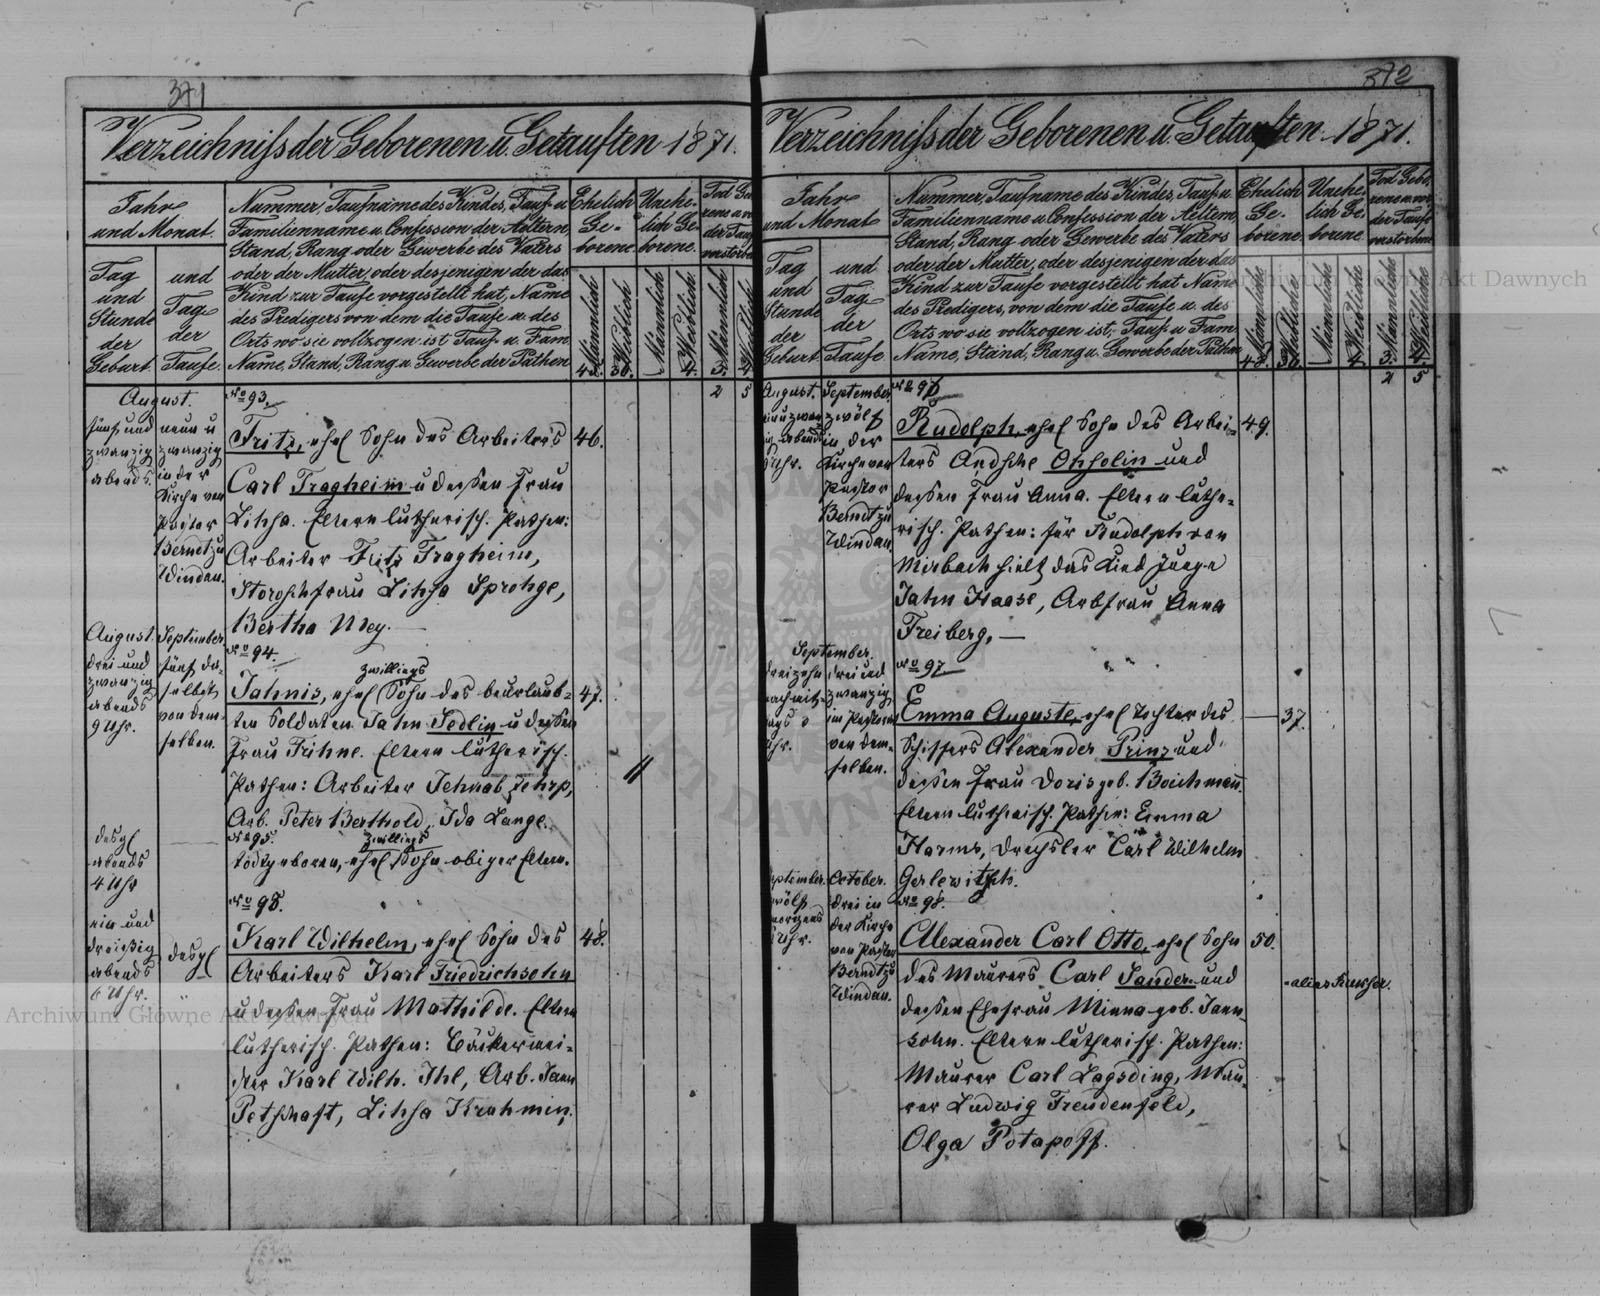 371
Verzeichniss der Geborenen u. Getauften 1871.
Jahr
und Monat.
Tag
und
Stunde
der
Geburt.
und
Tag
der
Taufe.
Nummer, Taufname des Kindes, Tauf- u
Familienname u. Confession der Aeltern,
Stand, Rang oder Gewerbe des Vaters
oder der Mutter, oder desjenigen der das
Kind zur Taufe vorgestellt hat, Name
des Predigers von dem die Taufe u. des
Orts wo sie vollzogen ist, Tauf- u. Fam.
Name, Stand, Rang u. Gewerbe der Pathen
Ehelich
Ge-
borene.
Unehe-
lich Ge-
borene
Tod Ge-
Männlich
Weiblich
Männlich
Weiblich
Männlich
Weiblich
45.
36.
4.
3.
4
2
5
August.
fünf und
zwanzig
abends.
neun u
zwanzig
in der
Kirche von
Pastor
Berndt zu
Windau.
No 93.
Fritz, ehel Sohn des Arbeiters
46.
Carl Tragheim u dessen Frau
Lihsa. Eltern lutherisch. Pathen:
Arbeiter Fritz Tragheim,
Storoschfrau Lihsa Sprohge,
Bertha Mey.
August.
drei und
zwanzig
abends
9 Uhr.
September
fünf da-
selbst
von dem-
selben.
No 94.
Zwillings
Jahnis, ehel Sohn des beurlaub-
47.
ten Soldaten Jahn Sedlin u dessen
Frau Trihne. Eltern lutherisch.
Pathen: Arbeiter Jehkab
Arb. Peter Berthold, Ida Lange.
desgl
abends
4 Uhr
No 95.
Zwillings
todtgeboren, ehel Sohn obiger Eltern.
ein und
dreißig
abends
6 Uhr.
desgl
No 98.
Karl Wilhelm, ehel Sohn des
48.
Arbeiters Karl Friedrichsohn
u dessen Frau Mathilde. Eltern
lutherisch. Pathen: Bäckermei-
ster Karl Wilh. Ihl, Arb. Jann
Petschaft, Lihsa Kruhmin,
372
Verzeichniss der Geborenen u. Getauften 1871.
Jahr
und Monat
Tag
und
Stunde
der
Geburt.
und
Tag
der
Taufe
Nummer, Taufname des Kindes, Tauf- u
Familienname u. Confession der Aeltern,
Stand, Rang oder Gewerbe des Vaters
oder der Mutter, oder desjenigen der das
Kind zur Taufe vorgestellt hat, Name
des Predigers, von dem die Taufe u. des
Orts wo sie vollzogen ist, Tauf- u Fam.
Name, Stand, Rang u. Gewerbe der Pathen
Ehelich
Ge-
borene.
Unehe-
lich Ge-
borene.
Tod Gebo-
Männliche
Weibliche
Männliche
Weibliche
Männliche
Weibliche
48.
36.
4.
3.
4
2
5
August.
abends
Uhr.
September.
zwölf
in der
Kirche von
Pastor
Berndt zu
Windau.
Rudolph, ehel Sohn des Arbei-
49.
ters Andsche Ohsolin und
dessen Frau Anna. Eltern luthe-
risch. Pathen: für Rudolph von
Mirbach hielt das Kind Junge
Jahn Haase, Arbfrau Anna
Freiberg,
September.
dreizehn
Uhr.
drei und
zwanzig
im Pastorat
von dem-
selben.
No 97
Emma Auguste, ehel Tochter des
37.
Schiffers Alexander Prinz und
dessen Frau Doris geb. Boichmann.
Eltern lutherisch. Pathen: Emma
Harms, Drechsler Carl Wilhelm
Gerlewitsch.
September.
zwölf
morgens
Uhr.
October.
drei in
der Kirche
von Pastor
Berndt zu
Windau.
No 98.
Alexander Carl Otto, ehel Sohn
50.
des Maurers Carl Sander und
alias
dessen Ehefrau Minna geb. Jann-
sohn. Eltern lutherisch. Pathen:
Maurer Carl Lagsding, Mau-
rer Ludwig Freudenfeld,
Olga Potapoff.
Archiwum Główne Akt Dawnych
Archiwum Główne Akt Dawnych